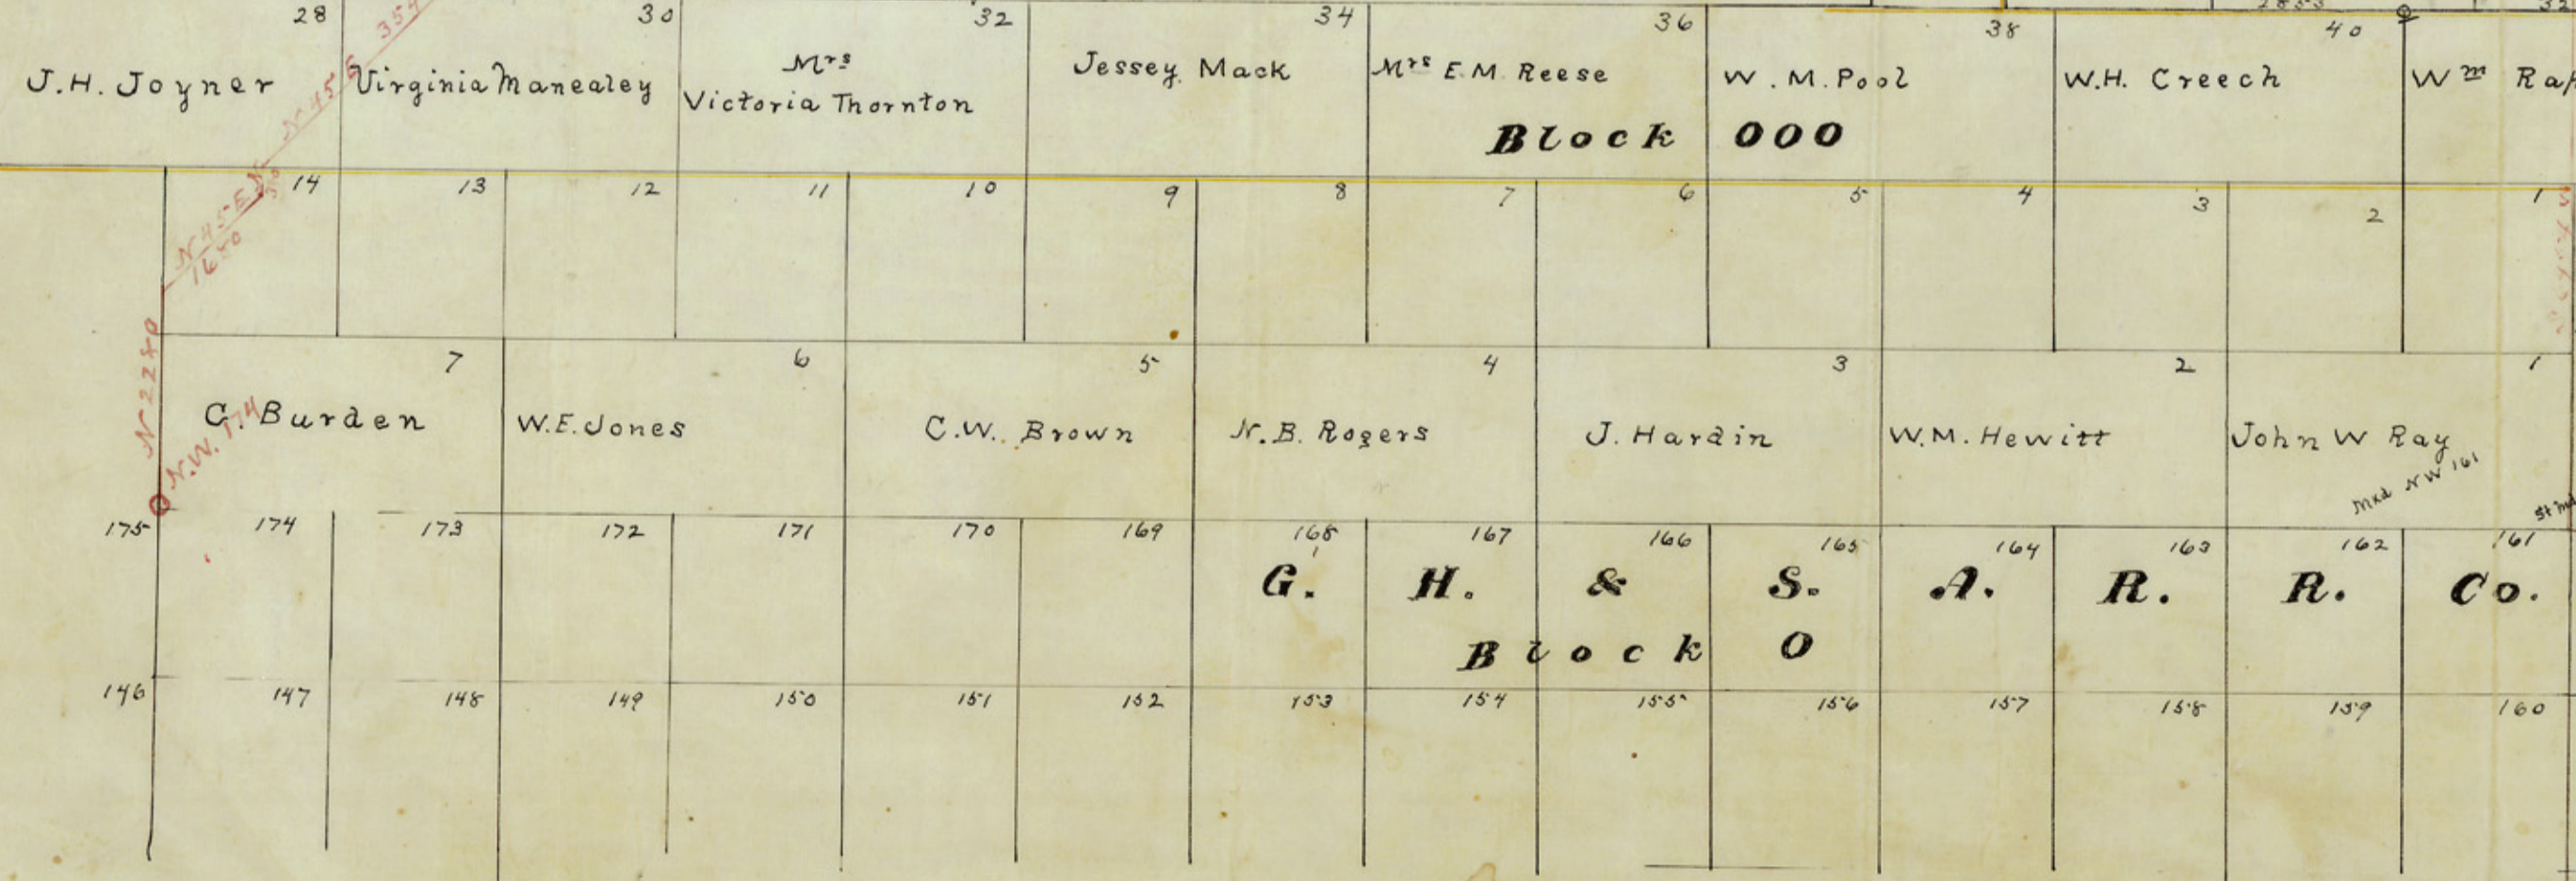 28 30 32 34 36 38 40
J.H. Joyner
Virginia Manealey
Mrs
Victoria Thornton
Jessey Mack
Mrs E.M Reese
W.M. Pool
W.H. Creech
Wm
Block 000
N 45 E
N 45 E
1680
14 13 12 11 10 9 8 7 6 5 4 3 2 1
N 2280
7 6 5 4 3 2 1
C. Burden
W.E. Jones
C.W. Brown
N.B. Rogers
J. Hardin
W.M. Hewitt
John W Ray
N.W. 174
Mkd NW 161
175 174 173 172 171 170 169 168 167 166 165 164 163 162 161
G. H. & S. A. R. R. Co.
Block O
146 147 148 149 150 151 152 153 154 155 156 157 158 159 160